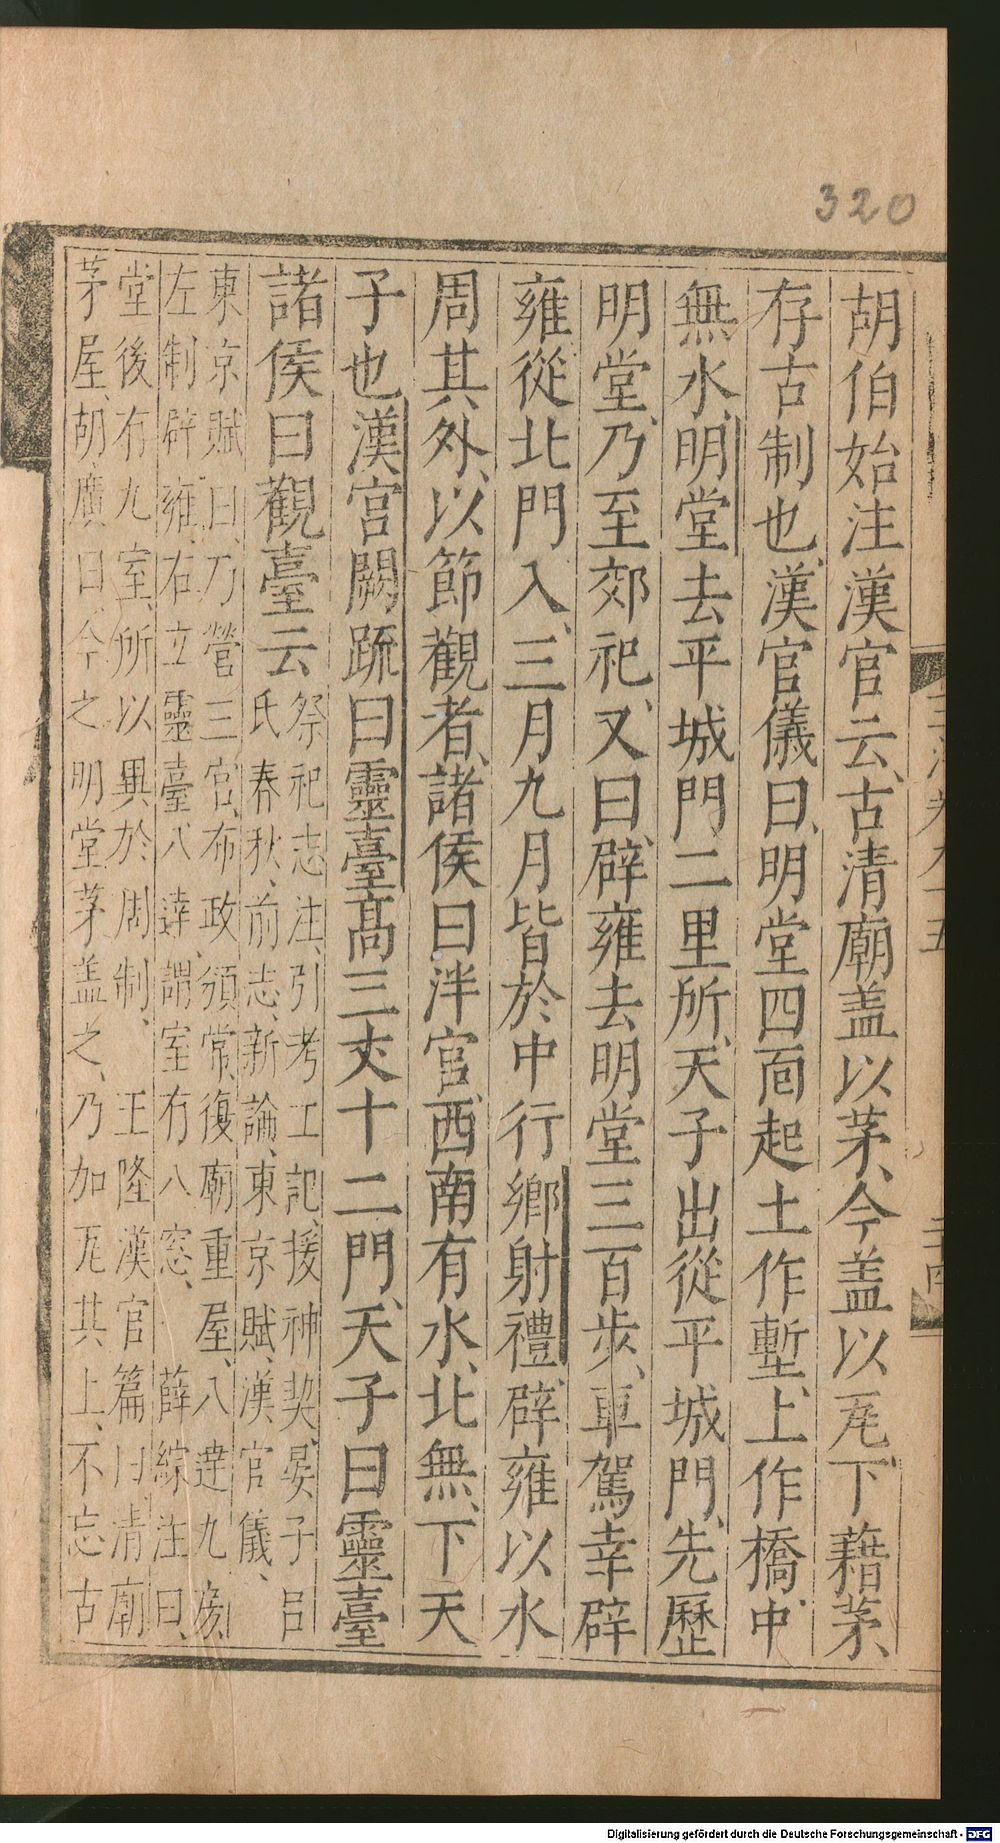 320
胡伯始注漢官云、古清廟盖以茅、今盖以瓦、下藉茅、
存古制也、漢官儀曰、明堂四面起土作塹、上作橋、中
無水、明堂去平城門二里所、天子出從平城門、先歷
明堂、乃至郊祀、又曰、辟雍去明堂三百步、車駕幸辟
雍從北門入、三月九月皆於中行鄉射禮、辟雍以水
周其外、以節觀者、諸侯曰泮宮、西南有水、北無、下天
子也漢宮闕疏曰靈臺高三丈十二門、天子曰靈臺
諸侯曰觀臺云
祭祀志注、引考工記、援神契、晏子吕
氏春秋、前志、新論、東京賦、漢官儀、
東京賦曰、乃營三宮、布政頒常、復廟重屋、八達九房、
左制辟雍、右立靈臺八達、謂室有八窓、薛綜注曰、
堂後有九室、所以異於周制、王隆漢官篇曰清廟
茅屋、胡廣曰今之明堂茅盖之、乃加瓦其上、不忘古
Digitalisierung gefördert durch die Deutsche Forschungsgemeinschaft - DFG